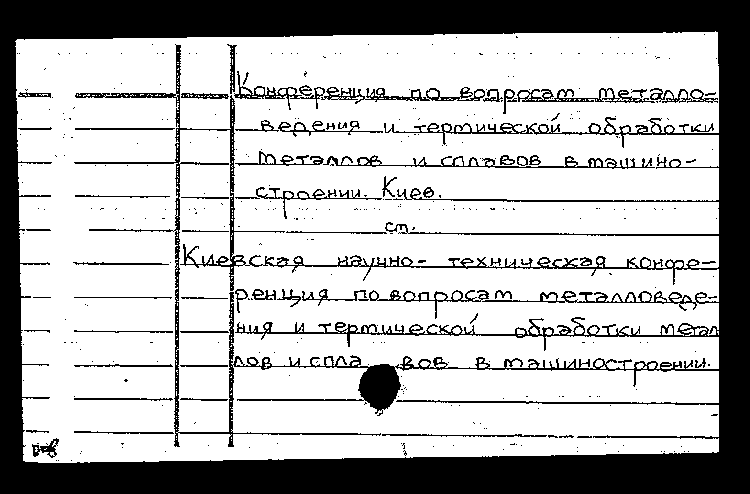 Конференция по вопросам металло-
ведения и термической обработки
металлов и сплавов в машино-
строении. Киев.
ст.
Киевская научно-техническая конфе-
ренция по вопросам металловеде-
ния и термической обработки метал
лов и спла вов в машиностроении.